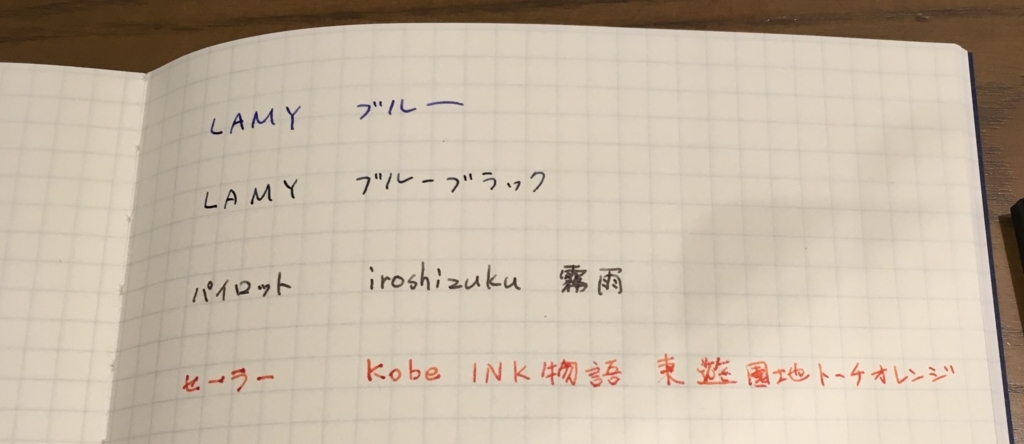 LAMY ブルー
LAMY ブルーブラック
パイロット iroshizuku 霧雨
セーラー Kobe INK物語 東遊園地トーチオレンジ